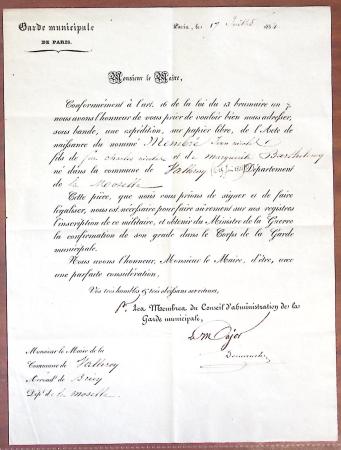 Garde municipale
DE PARIS.
Paris, les 17 Juillet
Monsieur le Maire,
Conformément à l'art. 16 de la loi du 13 brumaire an 7
nous avons l'honneur de vous prier de vouloir bien nous adresser,
sous bande, une expédition, sur papier libre, de l'Acte de
naissance du nommé Membré Jean
fils de Jean Charles et de marguerite Barthelemy
né dans la commune de Valleroy Département
de la Moselle
Cette pièce, que nous vous prions de signer et de faire
légaliser, nous est nécessaire pour faire sûrement sur nos registres
l'inscription de ce militaire, et obtenir du Ministre de la Guerre
la confirmation de son grade dans le Corps de la Garde
municipale.
Nous avons l'honneur, Monsieur le Maire, d'être, avec
une parfaite considération,
Vos très humbles & très obéissans serviteurs,
Les Membres du Conseil d'administration de la
Garde municipale,
Le
Monsieur le Maire de la
Commune de Valleroy
Arrond.t de Briey
Dép.t de la moselle